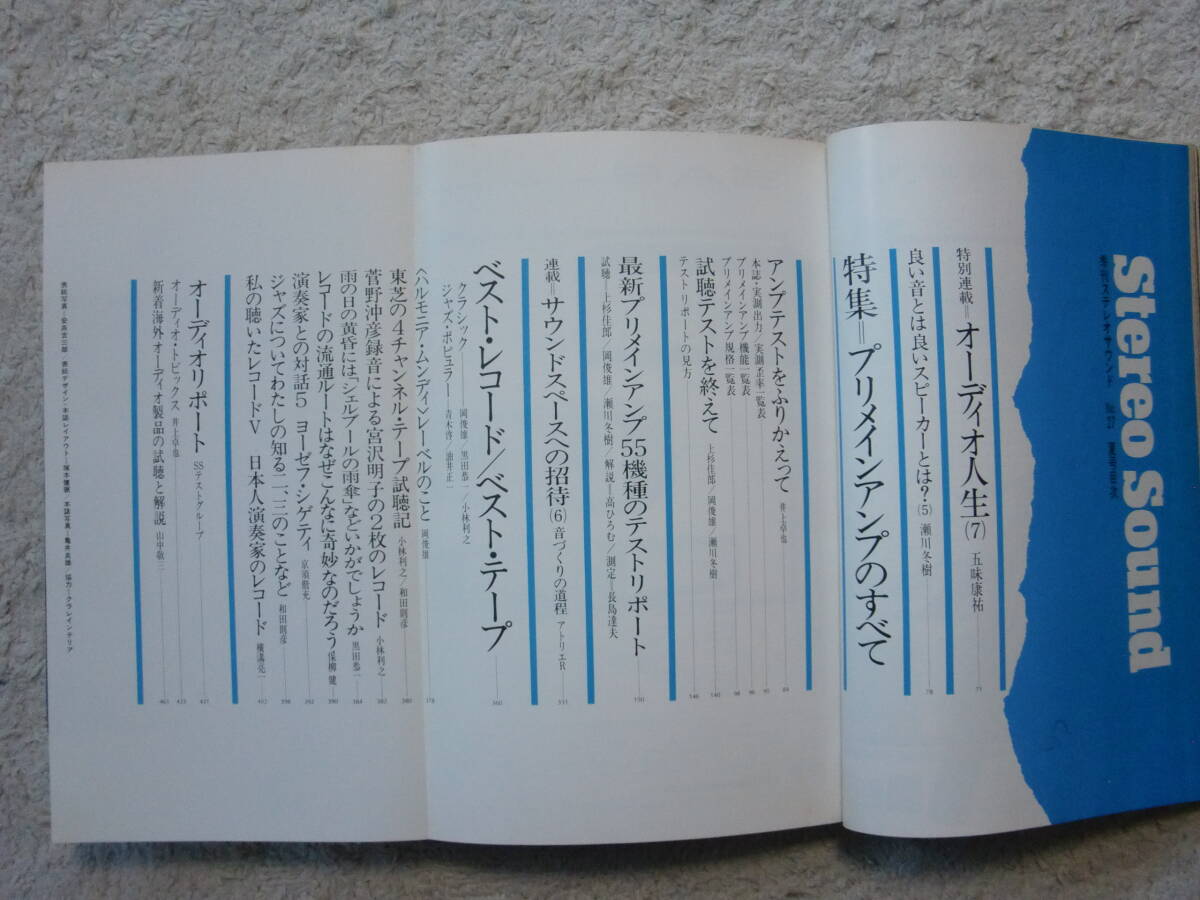 Stereo Sound
季刊ステレオサウンド No.27 夏号目次
特別連載＝オーディオ人生(7) 五味康祐 71
良い音とは良いスピーカーとは？(5) 瀬川冬樹 78
特集＝プリメインアンプのすべて
アンプテストをふりかえって 井上卓也 84
本誌・実測出力／実測歪率一覧表
プリメインアンプ機能一覧表
プリメインアンプ規格一覧表
試聴テストを終えて 上杉佳郎／岡俊雄／瀬川冬樹 140
テストリポートの見方 146
最新プリメインアンプ55機種のテストリポート 150
試聴＝上杉佳郎／岡俊雄／瀬川冬樹／解説＝高ひろむ／測定＝長島達夫
連載＝サウンドスペースへの招待(6) 音づくりの道程 アトリエR 351
ベスト・レコード／ベスト・テープ 360
クラシック 岡俊雄／黒田恭一／小林利之
ジャズ・ポピュラー 青木啓／油井正一
〈ハルモニア・ムンディ〉レーベルのこと 岡俊雄 378
東芝の4チャンネル・テープ試聴記 小林利之／和田則彦 380
菅野沖彦録音による宮沢明子の2枚のレコード 小林利之 382
雨の日の黄昏には「シェルブールの雨傘」などいかがでしょうか 黒田恭一 384
レコードの流通ルートはなぜこんなに奇妙なのだろう 保柳健 390
演奏家との対話5 ヨーゼフ・シゲティ 京須偕充 392
ジャズについてわたしの知る二、三のことなど 和田則彦 398
私の聴いたレコードV 日本人演奏家のレコード 横溝亮一 402
オーディオリポート SSテストグループ 421
オーディオ・トピックス 井上卓也 423
新着海外オーディオ製品の試聴と解説 山中敬三 461